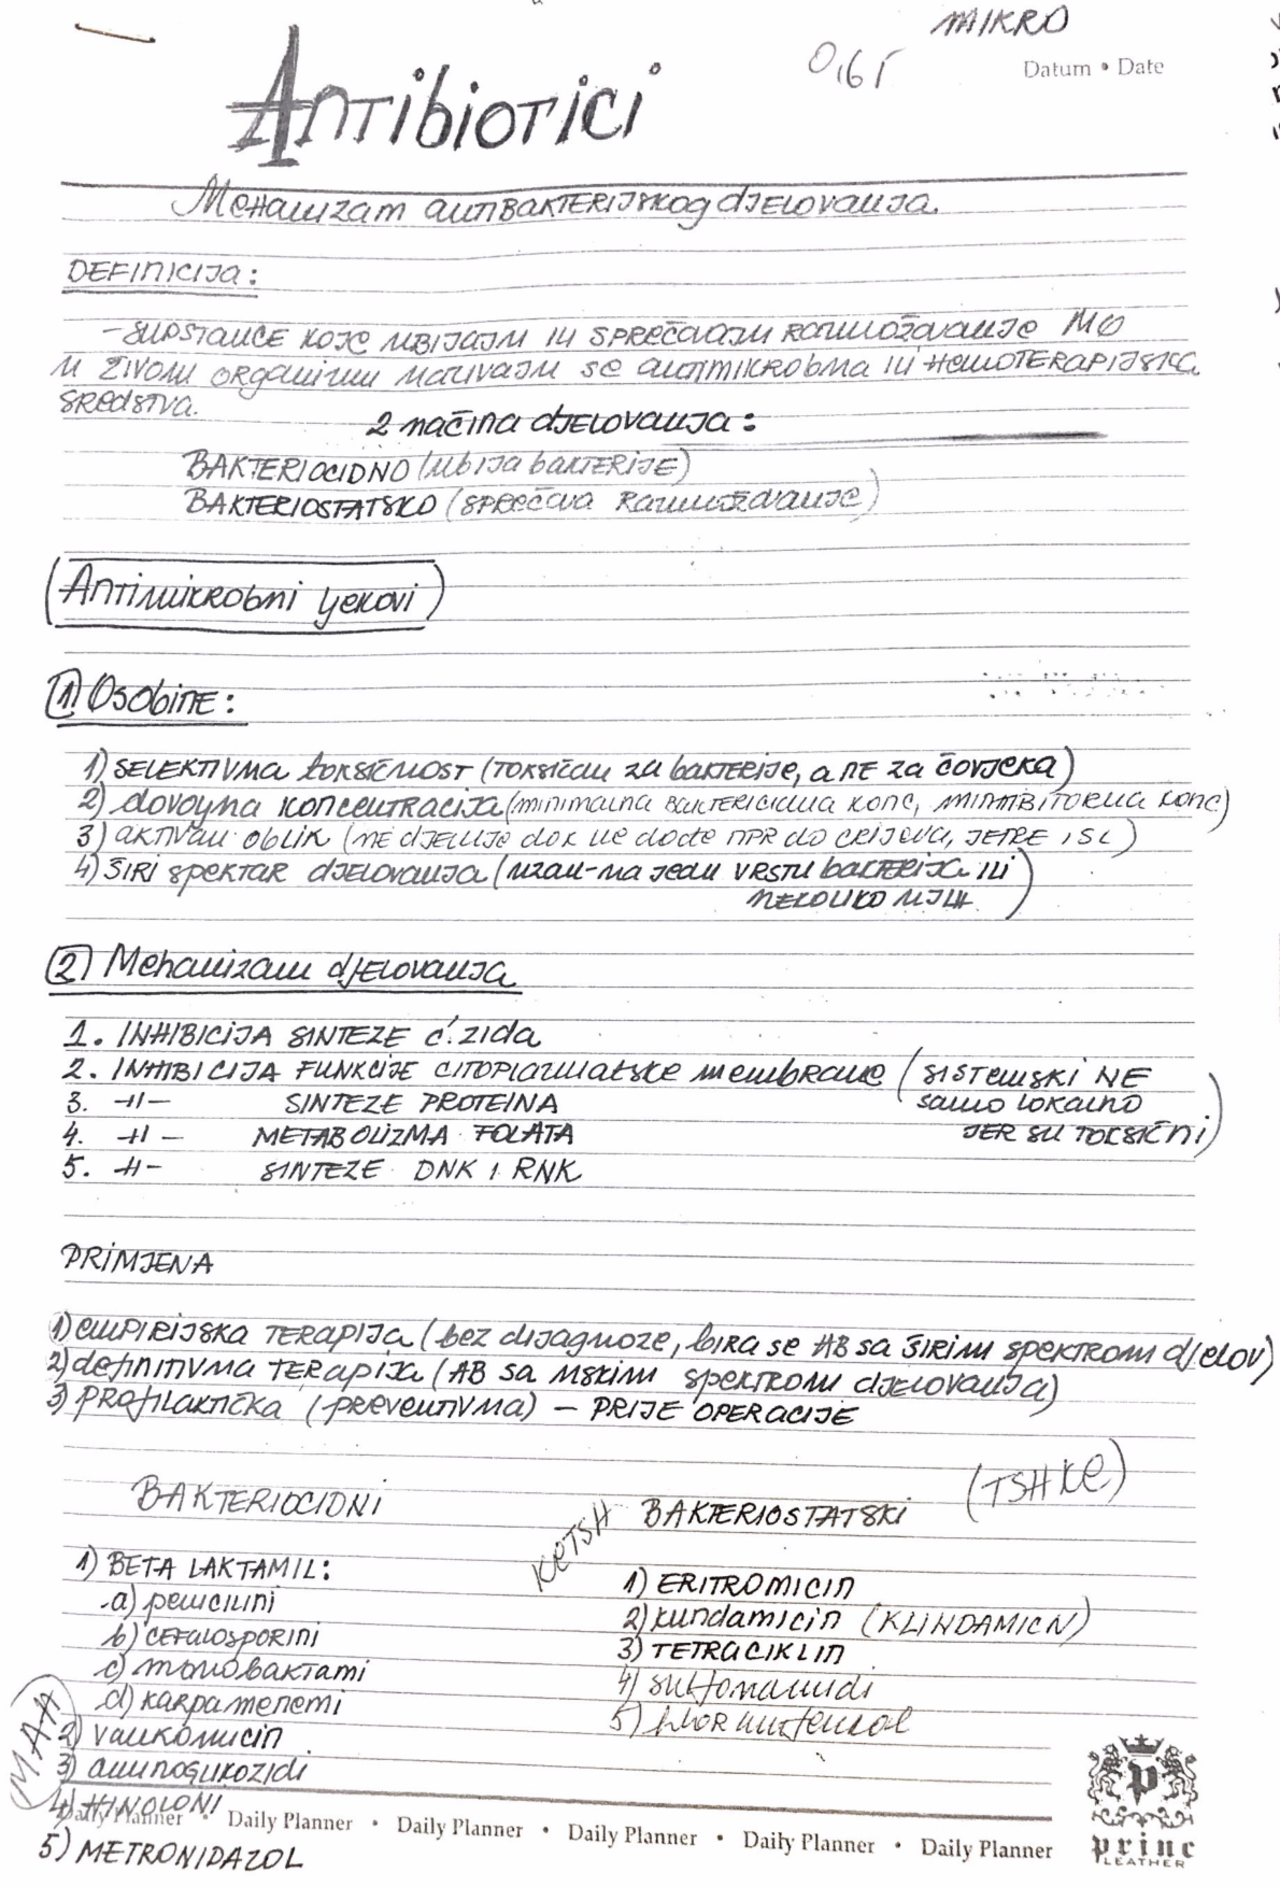 MIKRO
Datum • Date
Antibiotici
Mehanizam antibakterijskog djelovanja.
DEFINICIJA:
- supstance koje ubijaju ili sprečavaju razmnožavanje MO
u živom organizmu nazivaju se antimikrobna ili hemoterapijska
sredstva.
2 načina djelovanja:
BAKTERIOCIDNO (ubija bakterije)
BAKTERIOSTATSKO (sprečava razmnožavanje)
Antimikrobni ljekovi
1) Osobine:
1) SELEKTIVNA toksičnost (toksičan za bakterije, a ne za čovjeka)
2) dovoljna koncentracija (minimalna baktericidna konc, mininhibitorna konc)
3) aktivan oblik (ne djeluje dok ne dođe npr do crijeva, jetre i sl)
4) širi spektar djelovanja (uzan-na jednu vrstu bakterija ili
nekoliko njih)
2) Mehanizam djelovanja
1. INHIBICIJA SINTEZE ć. zida
2. INHIBICIJA FUNKCIJE citoplazmatske membrane (sistemski NE
3. -11- SINTEZE PROTEINA samo lokalno
4. -11- METABOLIZMA FOLATA jer su toksični)
5. -11- SINTEZE DNK i RNK
PRIMJENA
1) empirijska terapija (bez dijagnoze, bira se AB sa širim spektrom djelov)
2) definitivna terapija (AB sa uskim spektrom djelovanja)
3) profilaktička (preventivna) - PRIJE OPERACIJE
BAKTERIOCIDNI
BAKTERIOSTATSKI
(TSHKE)
KETSH
1) BETA LAKTAMIL:
a) penicilini
b) cefalosporini
c) monobaktami
d) karpamenemi
2) vankomicin
3) aminoglikozidi
4) HINOLONI
5) METRONIDAZOL
MAH
1) ERITROMICIN
2) klindamicin (KLINDAMICN)
3) TETRACIKLIN
4) sulfonamidi
5) hloramfenikol
Daily Planner • Daily Planner • Daily Planner • Daily Planner • Daily Planner • Daily Planner
P
princ
LEATHER